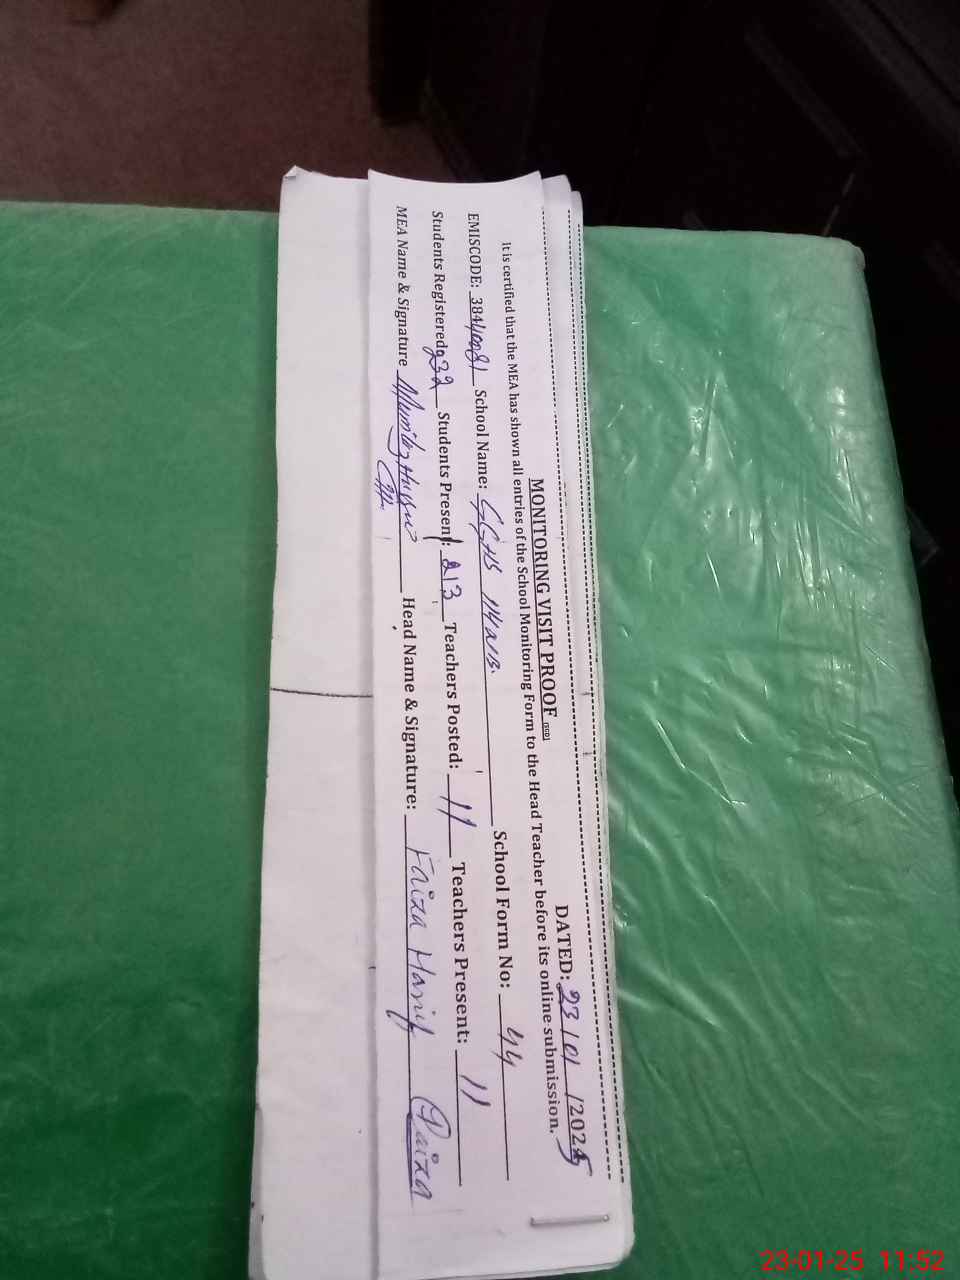 MONITORING VISIT PROOF [SED] DATED: 23/01/2025
It is certified that the MEA has shown all entries of the School Monitoring Form to the Head Teacher before its online submission.
EMISCODE: 38440081 School Name: GGHS 114/NB. School Form No: 44
Students Registered: 232 Students Present: 213 Teachers Posted: 11 Teachers Present: 11
MEA Name & Signature Head Name & Signature: Faiza Hanif Faiza
23-01-25 11:52